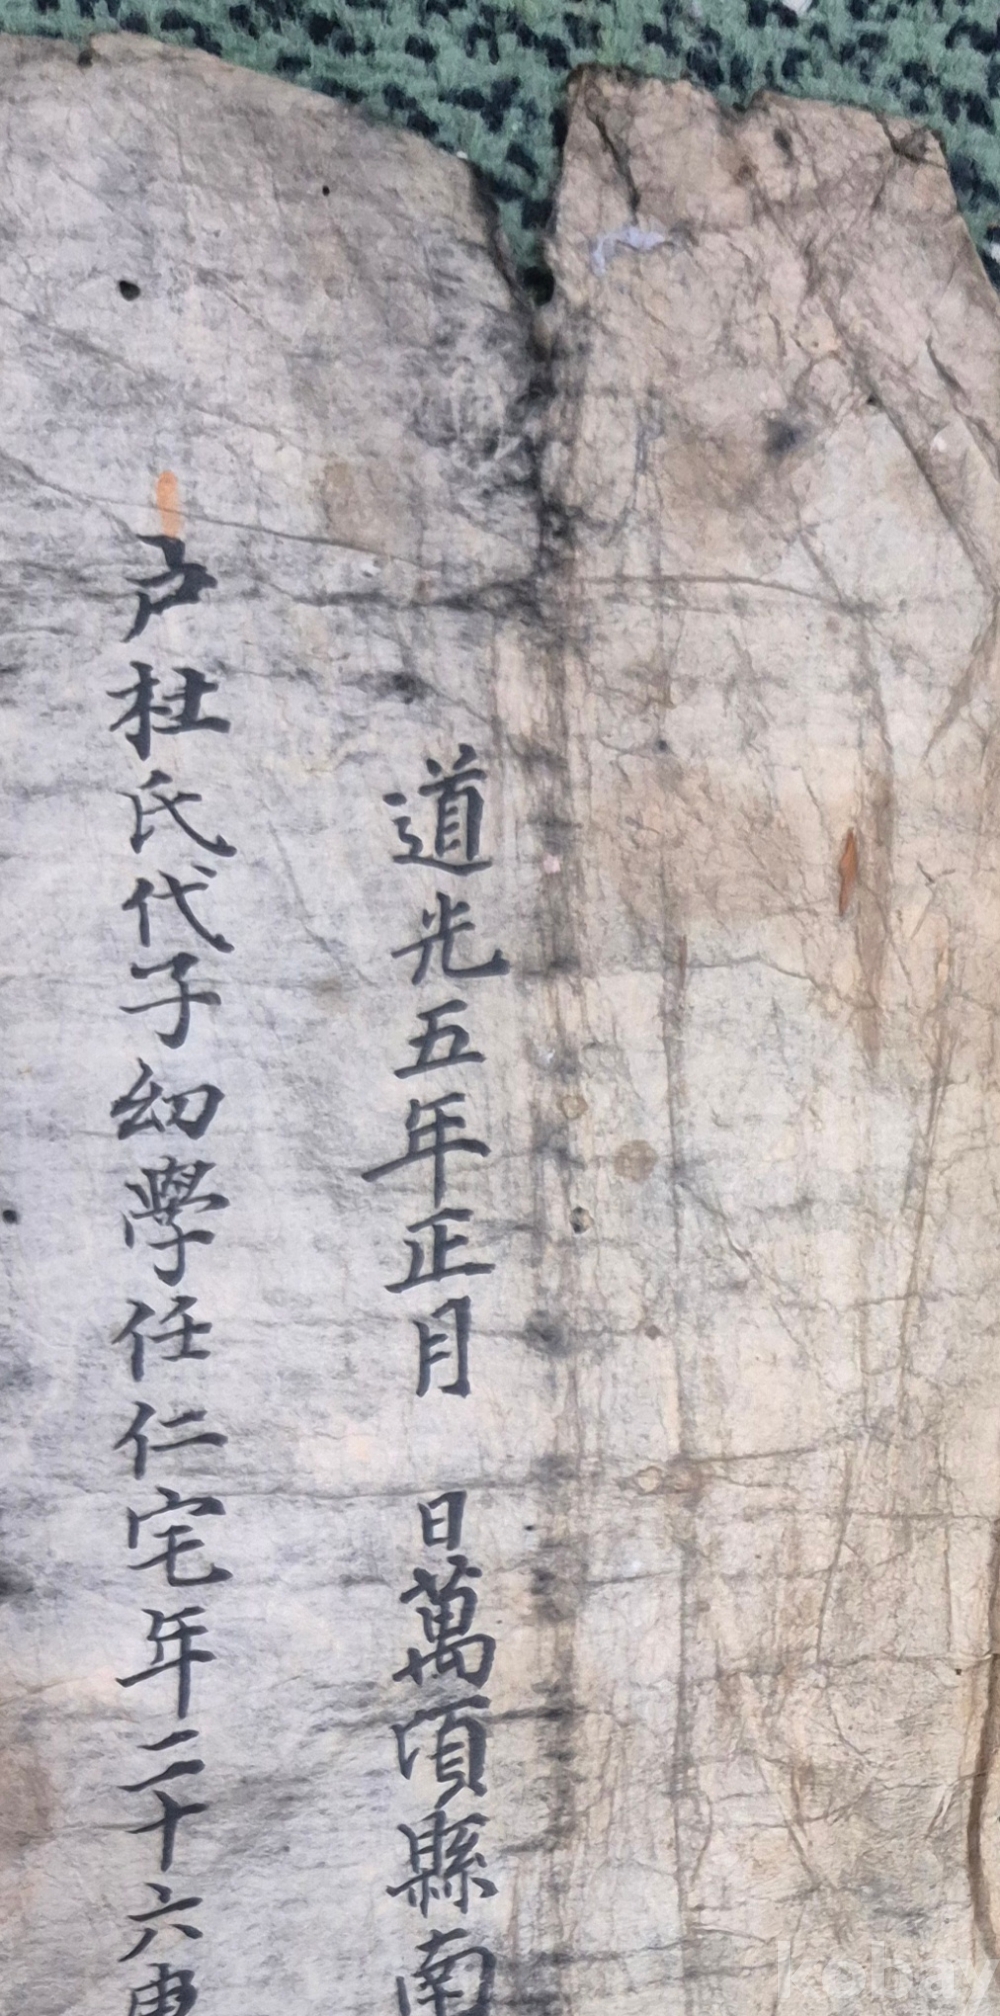 道光五年正月 日萬頃縣南
户杜氏代子幼學任仁宅年二十六
kobay